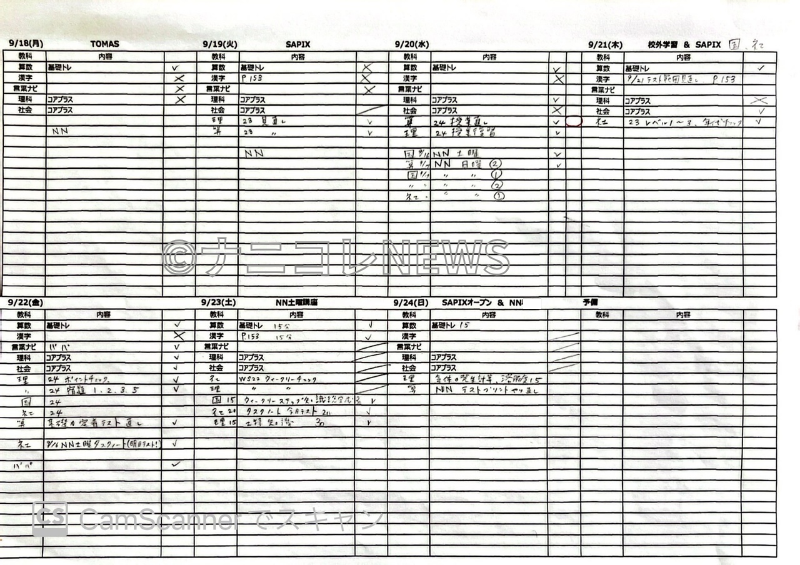 9/18(月) TOMAS
教科 内容
算数 基礎トレ
漢字
言葉ナビ
理科 コアプラス
社会 コアプラス
NN
9/19(火) SAPIX
教科 内容
算数 基礎トレ
漢字 P 153
言葉ナビ
理科 コアプラス
社会 コアプラス
理 23 見直し
算 23 〃
NN
9/20(水)
教科 内容
算数 基礎トレ
漢字
言葉ナビ
理科 コアプラス
社会 コアプラス
算 24 授業直し
理 24 授業復習
NN 土曜
NN 日曜 ②
国 〃 〃 ①
〃 〃 〃 ②
社 〃 〃 ①
9/21(木) 校外学習 & SAPIX 国、社
教科 内容
算数 基礎トレ
漢字 P 153
言葉ナビ
理科 コアプラス
社会 コアプラス
社 23 レベル1〜3、
©ナニコレNEWS
9/22(金)
教科 内容
算数 基礎トレ
漢字
言葉ナビ パパ
理科 コアプラス
社会 コアプラス
理 24 ポイントチェック
〃 24 1、2、3、5
国 24
社 24
算 定着テスト直し
社 NN土曜タスクノート
パパ
9/23(土) NN土曜講座
教科 内容
算数 基礎トレ 15分
漢字 P 153 15分
言葉ナビ
理科 コアプラス
社会 コアプラス
社 WS22 ウィークリーチェック
理 〃 〃
国 15
社 20 タスクノート
理 15 30
9/24(日) SAPIXオープン & NN
教科 内容
算数 基礎トレ 15
漢字
言葉ナビ
理科 コアプラス
社会 コアプラス
理
算 NN テストプリントやり直し
予備
教科 内容
CS CamScanner でスキャン